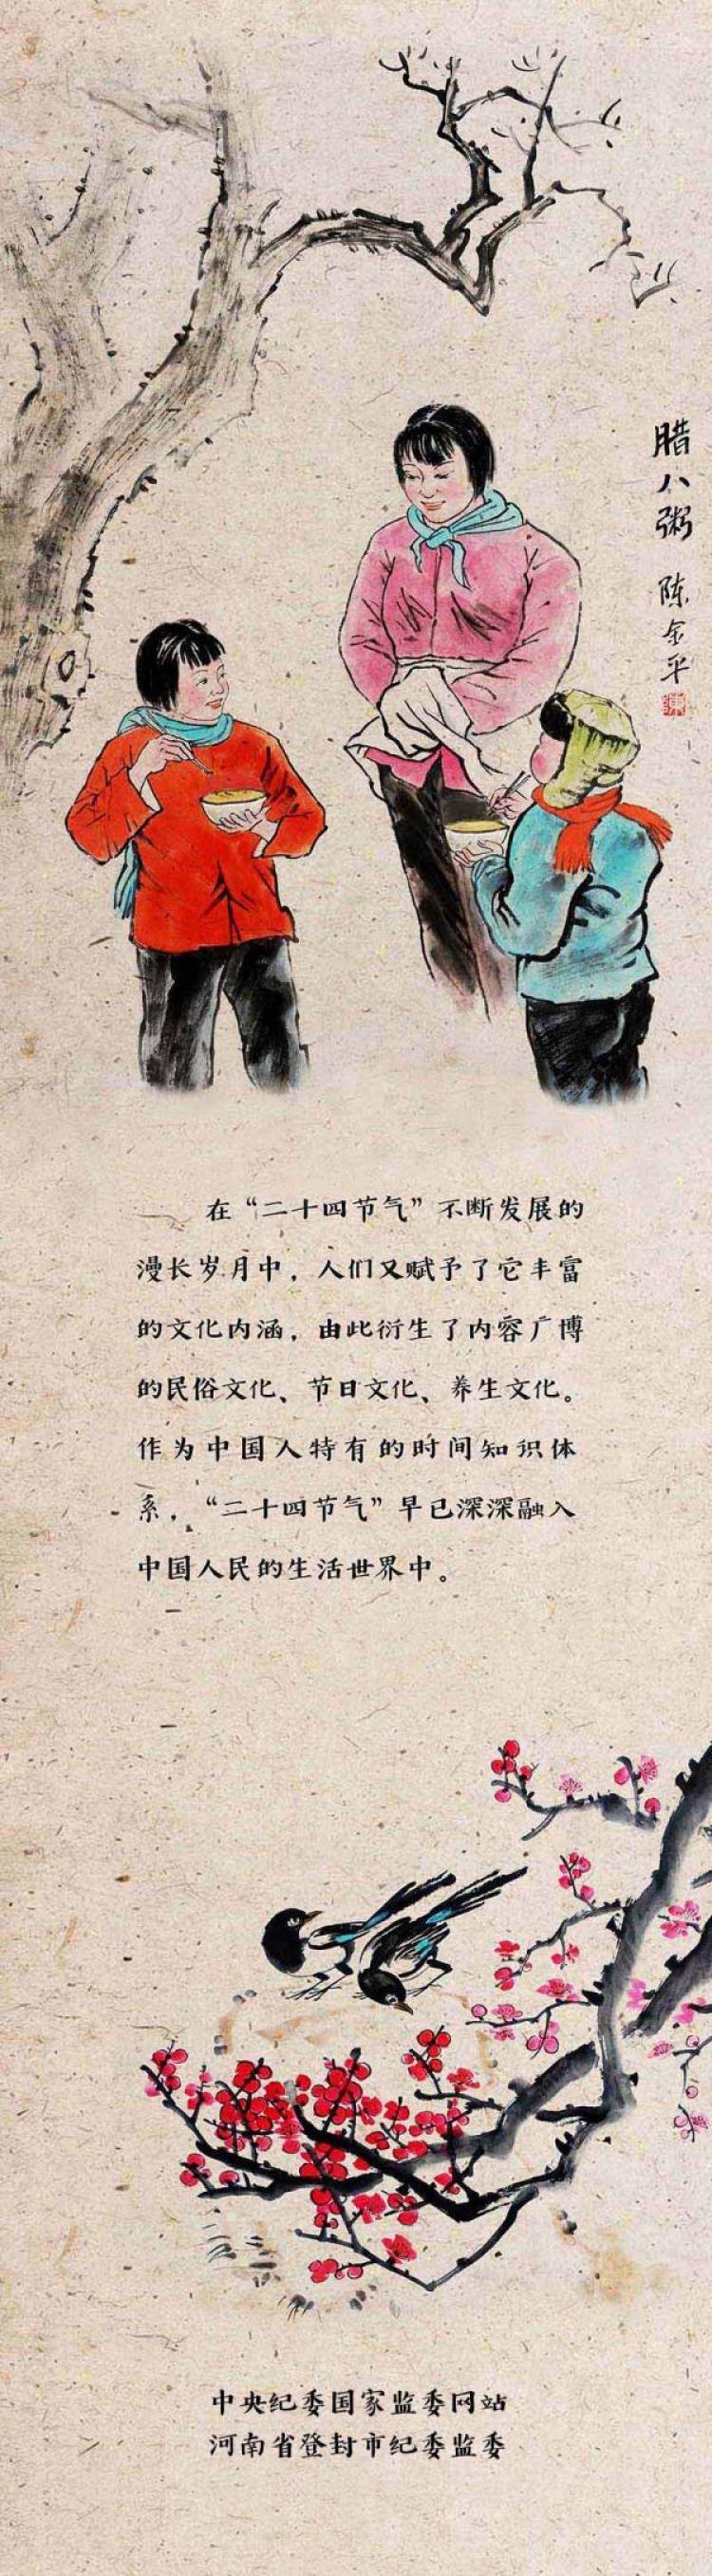 腊八粥 陈金平
在“二十四节气”不断发展的
漫长岁月中，人们又赋予了它丰富
的文化内涵，由此衍生了内容广博
的民俗文化、节日文化、养生文化。
作为中国人特有的时间知识体
系，“二十四节气”早已深深融入
中国人民的生活世界中。
中央纪委国家监委网站
河南省登封市纪委监委